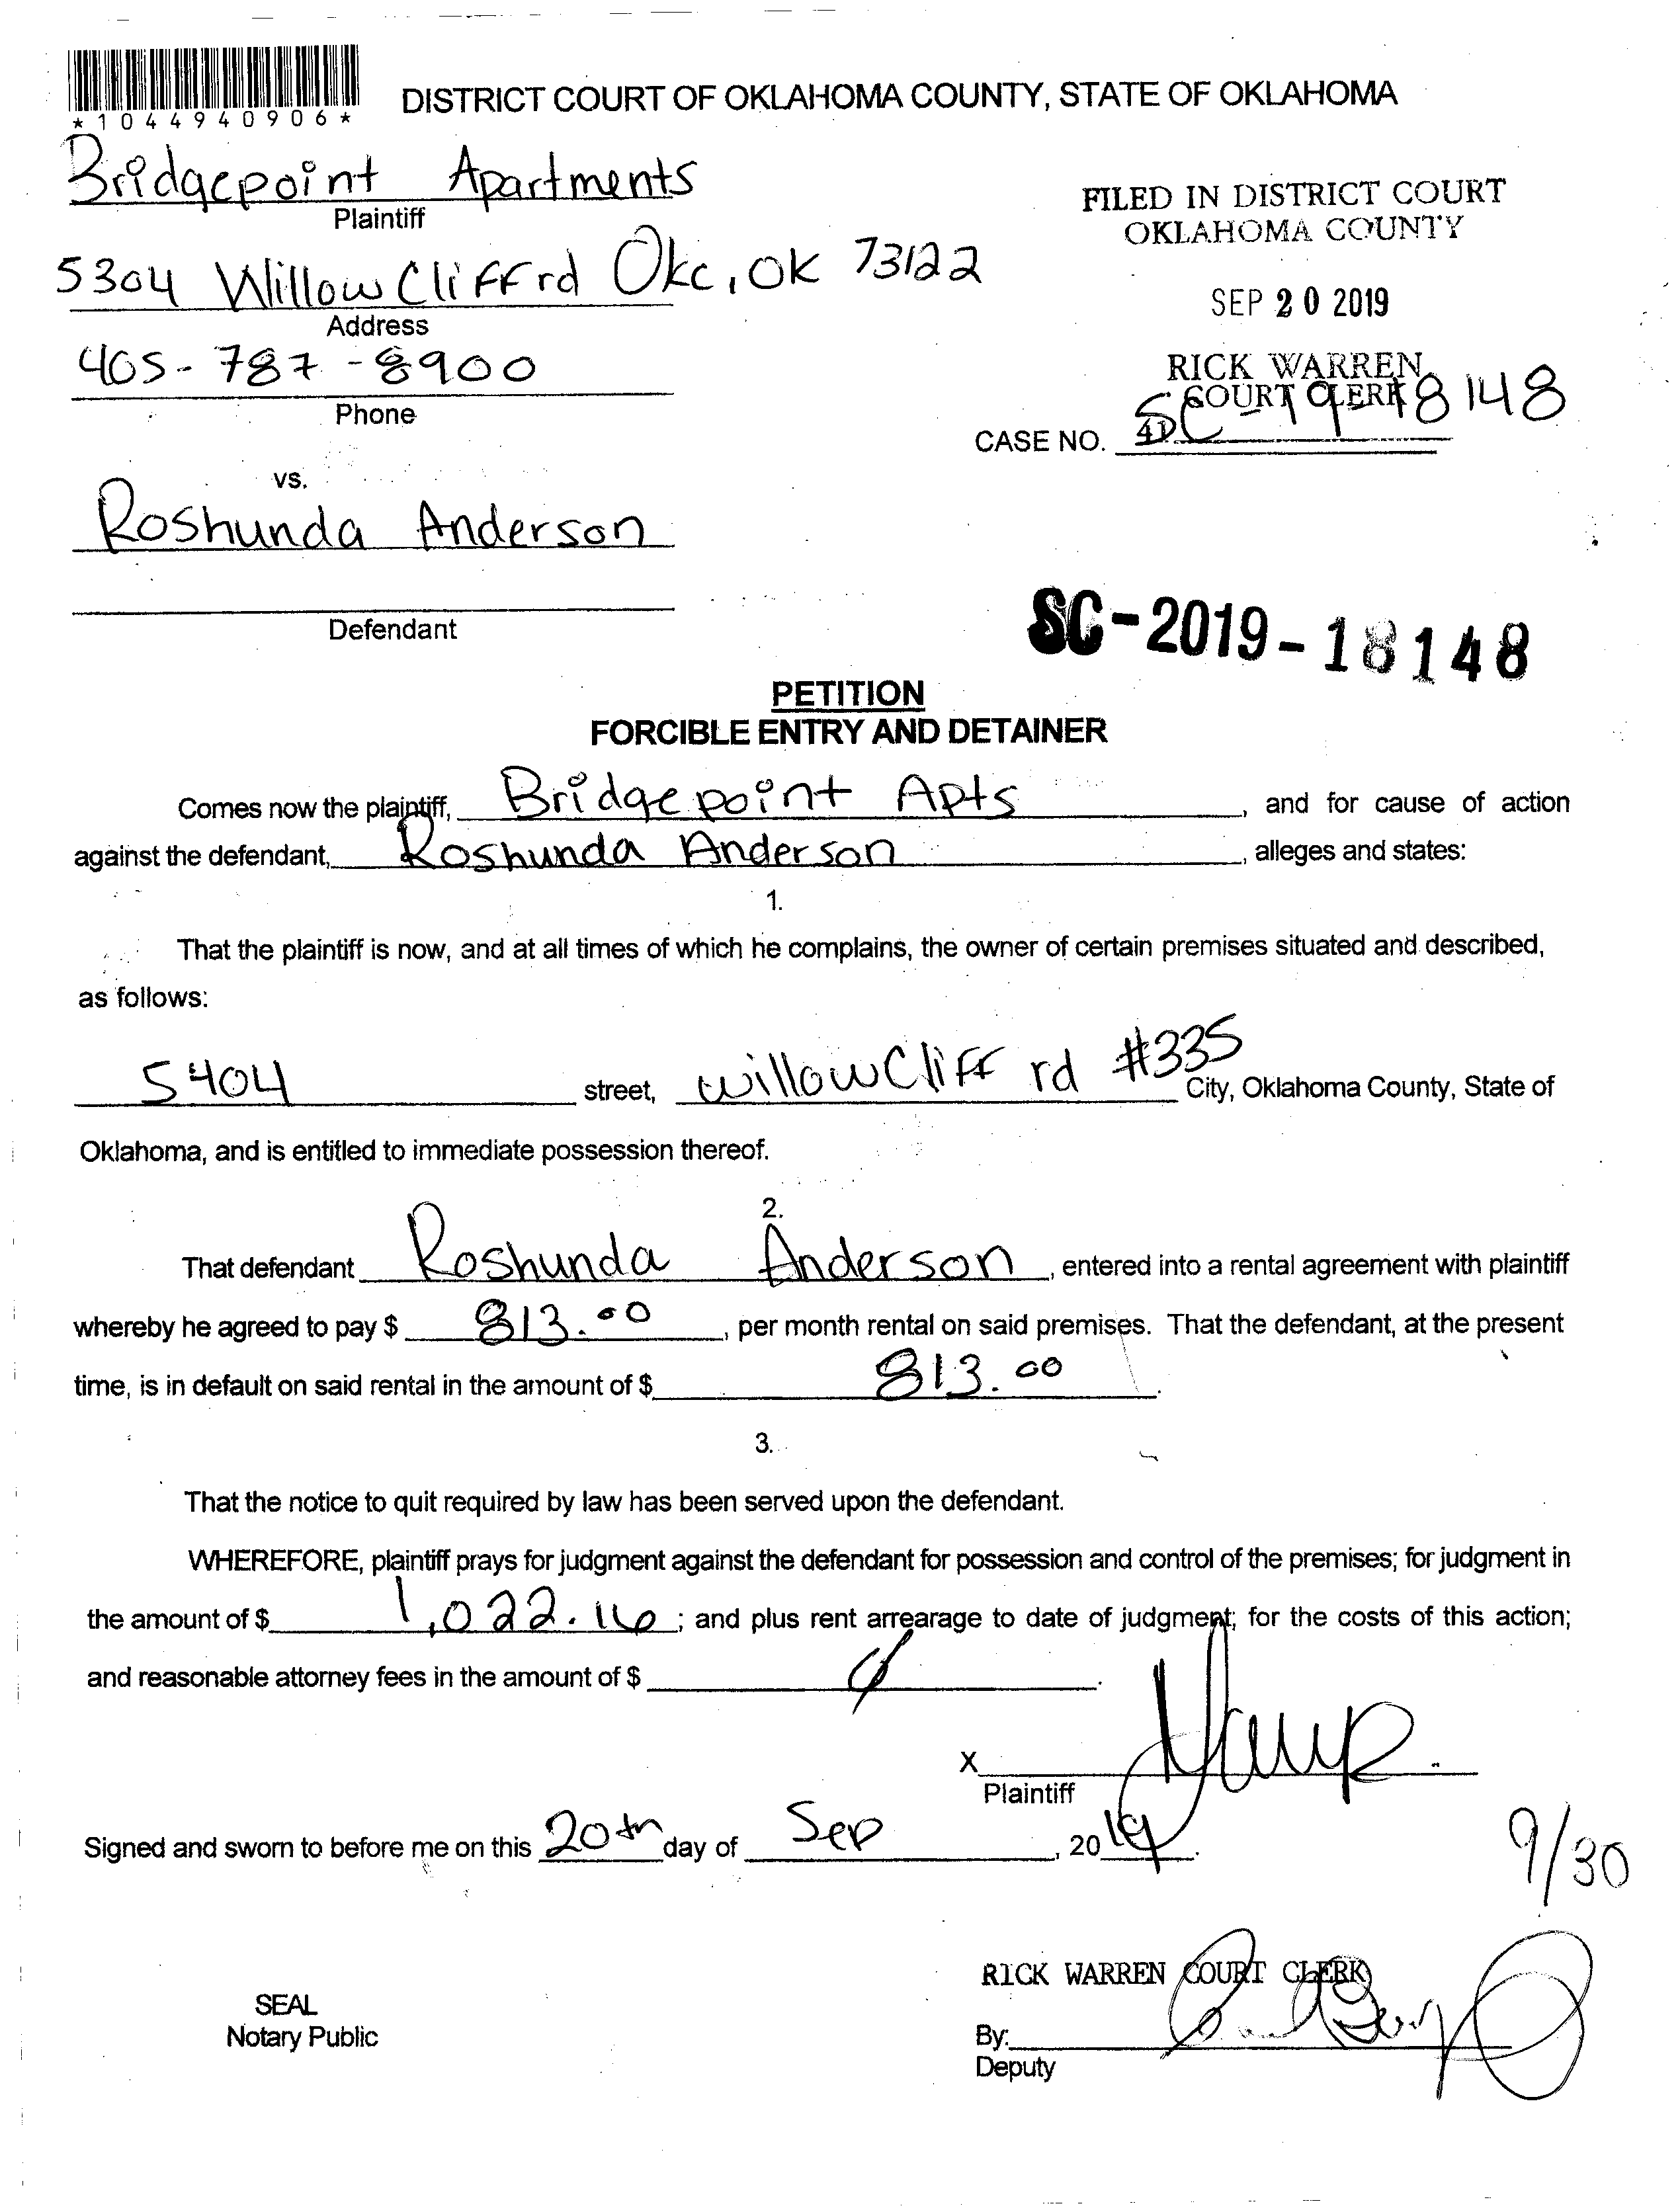 *1044940906*
DISTRICT COURT OF OKLAHOMA COUNTY, STATE OF OKLAHOMA
Bridgepoint Apartments
Plaintiff
FILED IN DISTRICT COURT
OKLAHOMA COUNTY
5304 Willow Cliff rd Okc, OK 73122
Address
SEP 20 2019
405-787-8900
Phone
RICK WARREN
COURT CLERK
CASE NO. SC-19-18148
41
vs.
Roshunda Anderson
Defendant
SC-2019-18148
PETITION
FORCIBLE ENTRY AND DETAINER
Comes now the plaintiff, Bridgepoint Apts, and for cause of action
against the defendant, Roshunda Anderson, alleges and states:
1.
That the plaintiff is now, and at all times of which he complains, the owner of certain premises situated and described,
as follows:
5404 street, willow Cliff rd #335 City, Oklahoma County, State of
Oklahoma, and is entitled to immediate possession thereof.
2.
That defendant Roshunda Anderson, entered into a rental agreement with plaintiff
whereby he agreed to pay $ 813.00, per month rental on said premises. That the defendant, at the present
time, is in default on said rental in the amount of $ 813.00.
3.
That the notice to quit required by law has been served upon the defendant.
WHEREFORE, plaintiff prays for judgment against the defendant for possession and control of the premises; for judgment in
the amount of $ 1,022.16; and plus rent arrearage to date of judgment; for the costs of this action;
and reasonable attorney fees in the amount of $ 0.
X
Plaintiff
Signed and sworn to before me on this 20th day of Sep, 2019.
9/30
RICK WARREN COURT CLERK
SEAL
Notary Public
By:
Deputy